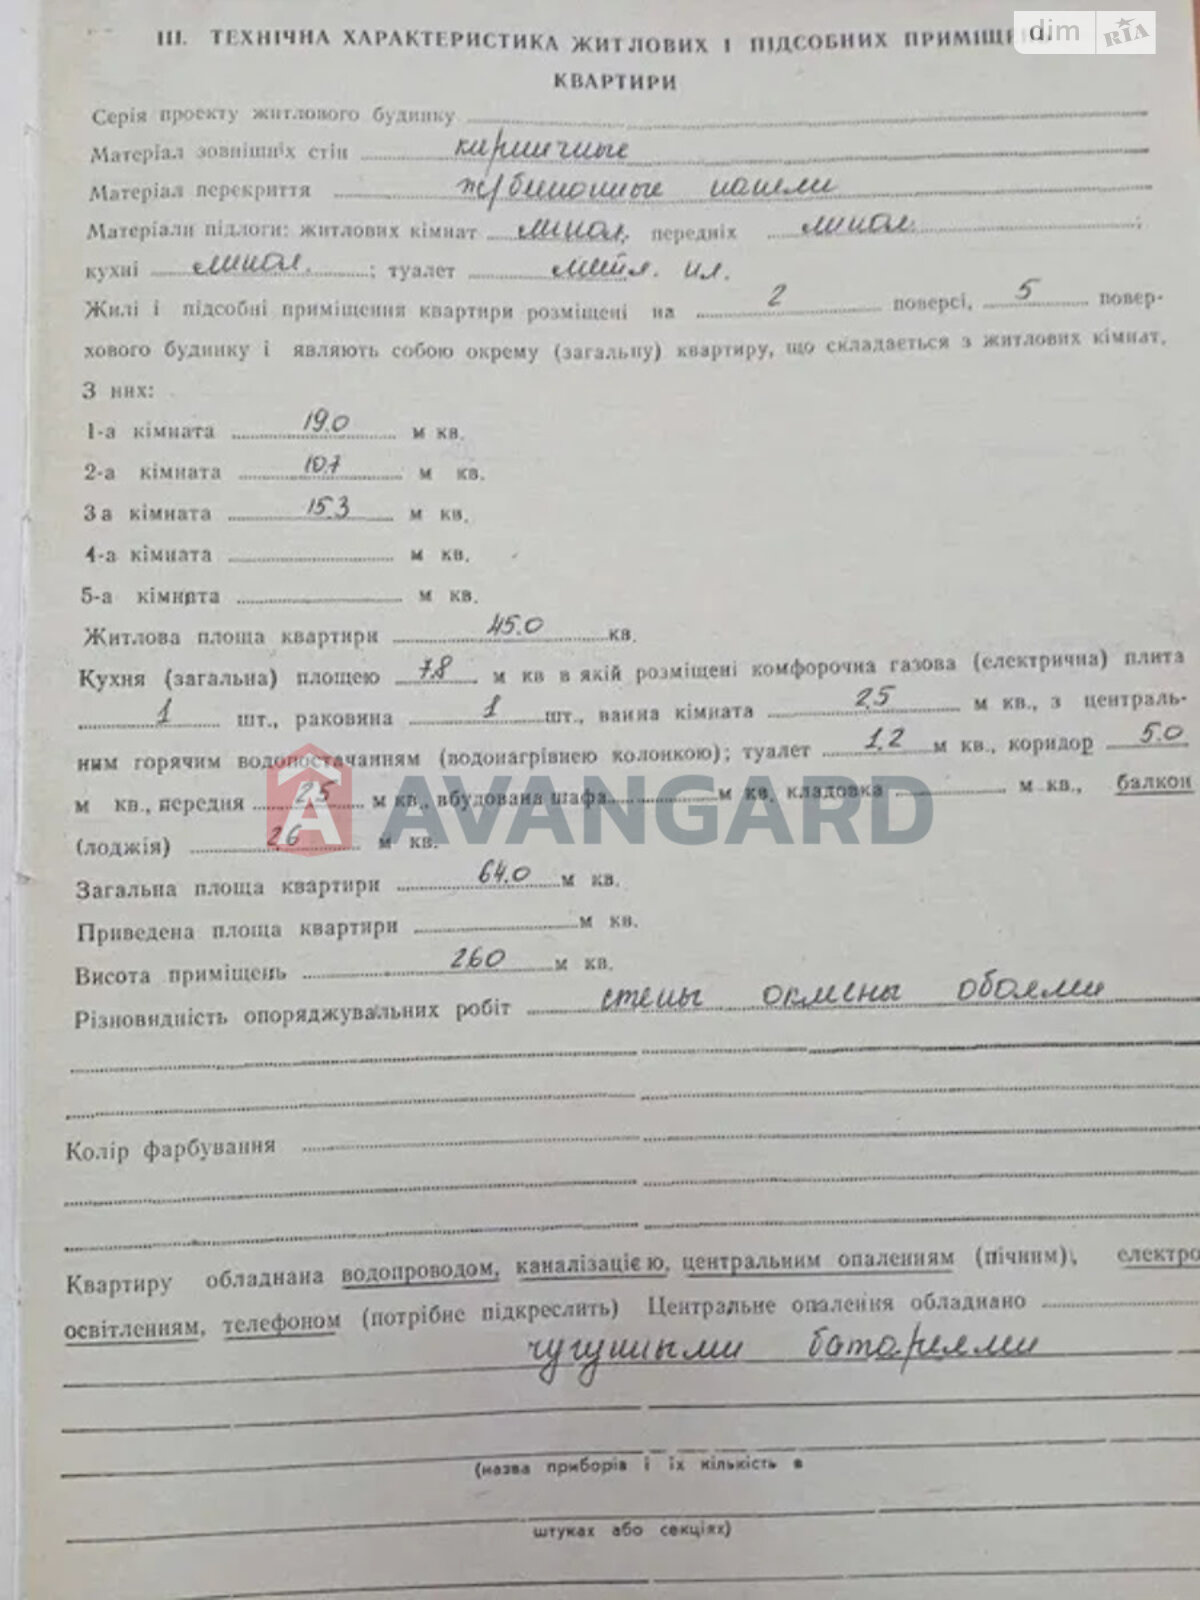 dim RIA
III. ТЕХНІЧНА ХАРАКТЕРИСТИКА ЖИТЛОВИХ І ПІДСОБНИХ ПРИМІЩЕНЬ
КВАРТИРИ
Серія проекту житлового будинку
Матеріал зовнішніх стін кирпичные
Матеріал перекриття ж/бетонные панели
Матеріали підлоги: житлових кімнат линол. передніх линол. ;
кухні линол. ; туалет метл. пл.
Жилі і підсобні приміщення квартири розміщені на 2 поверсі, 5 повер-
хового будинку і являють собою окрему (загальну) квартиру, що складається з житлових кімнат.
З них:
1-а кімната 19.0 м кв.
2-а кімната 10.7 м кв.
3а кімната 15.3 м кв.
4-а кімната м кв.
5-а кімната м кв.
Житлова площа квартири 45.0 кв.
Кухня (загальна) площею 7.8 м кв в якій розміщені комфорочна газова (електрична) плита
1 шт., раковина 1 шт., ванна кімната 2.5 м кв., з централь-
ним горячим водопостачанням (водонагрівнею колонкою); туалет 1.2 м кв., коридор 5.0
м кв., передня 2.5 м кв., вбудована шафа м кв. кладовка м кв., балкон
AVANGARD
(лоджія) 2.6 м кв.
Загальна площа квартири 64.0 м кв.
Приведена площа квартири м кв.
Висота приміщень 260 м кв.
Різновидність опоряджувальних робіт стены оклеены обоями
Колір фарбування
Квартиру обладнана водопроводом, каналізацією, центральним опаленням (пічним), електро
освітленням, телефоном (потрібне підкреслить) Центральне опалення обладнано
чугунными батареями
(назва приборів і їх кількість в
штуках або секціях)